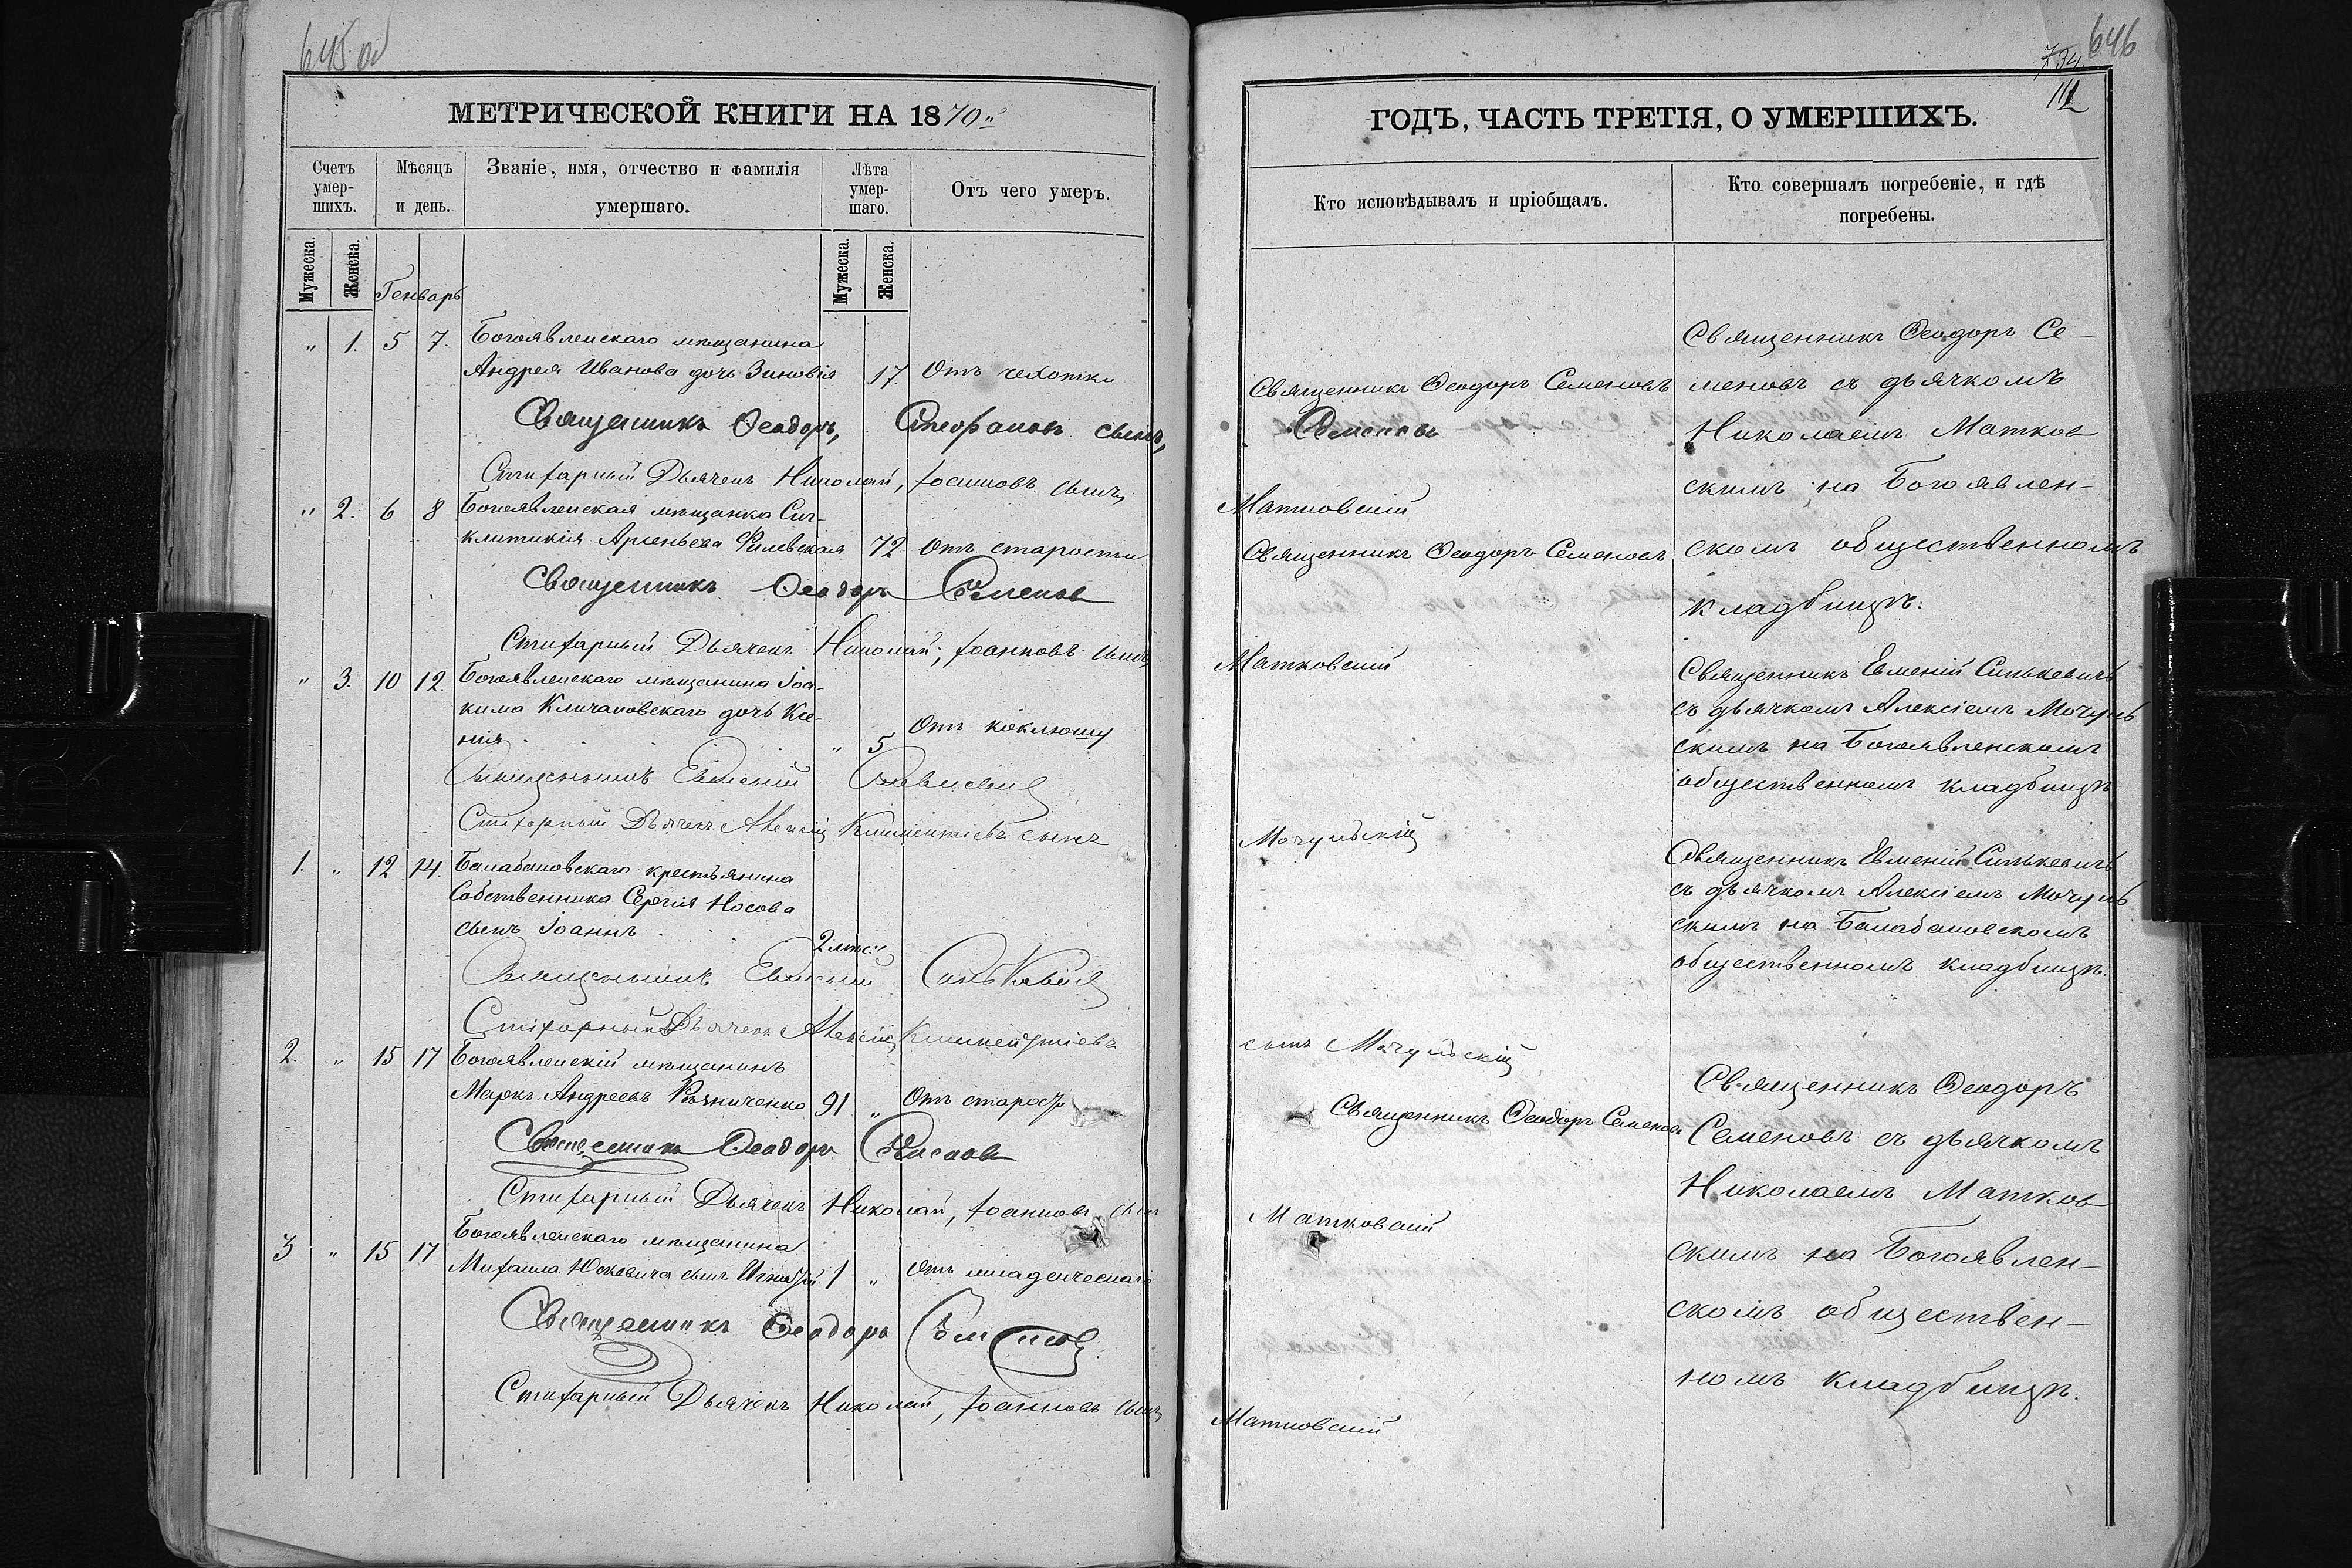 645 об
МЕТРИЧЕСКОЙ КНИГИ НА 1870"
Счетъ умер-шихъ.
Мѣсяцъ и день.
Званіе, имя, отчество и фамилія умершаго.
Лѣта умер-шаго.
Отъ чего умеръ.
Мужеска.
Женска.
Генварь
Мужеска.
Женска.
" 1. 5 7. Богоявленскаго мѣщанина
Андрея Иванова дочь Зиновія 17. Отъ чехотки
Священникъ Ѳеодоръ, Стефановъ сынъ,
Стихарный Дьячекъ Николай, Іоанновъ сынъ,
" 2. 6 8 Богоявленская мѣщанка Син-
клитикія Арсеньева 72 Отъ старости
Священникъ Ѳеодоръ Семеновъ
Стихарный Дьячекъ Николай, Іоанновъ сынъ,
" 3. 10 12. Богоявленскаго мѣщанина Іоа-
кима Кличановскаго дочь Ксе-
нія " 5 Отъ коклюшу
Священникъ Евменій Синькевичъ
Стихарный Дьячекъ Алексій Климентіевъ сынъ
1. " 12 14. Балабановскаго крестьянина
Собственника Сергія Носова
сынъ Іоаннъ 2 мѣс.
Священникъ Евменій Синькевичъ
Стихарный Дьячекъ Алексій Климентіевъ
2. " 15 17 Богоявленскій мѣщанинъ
Маркъ Андреевъ 91 " Отъ старос.
Священникъ Ѳеодоръ Семеновъ
Стихарный Дьячекъ Николай, Іоанновъ сынъ
3 " 15 17 Богоявленскаго мѣщанина
Михаила Юскевича сынъ Игнатій 1 " Отъ младенческаго
Священникъ Ѳеодоръ Семеновъ
Стихарный Дьячекъ Николай, Іоанновъ сынъ,
646
734
112
ГОДЪ, ЧАСТЬ ТРЕТІЯ, О УМЕРШИХЪ.
Кто исповѣдывалъ и пріобщалъ.
Кто совершалъ погребеніе, и гдѣ
погребены.
Священникъ Ѳеодоръ Семеновъ
Семеновъ
Матковскій
Священникъ Ѳеодоръ Семеновъ
Матковскій
Мочульскій
сынъ Мочульскій
Священникъ Ѳеодоръ Семеновъ
Матковскій
Матковскій
Священникъ Ѳеодоръ Се-
меновъ съ дьячкомъ
Николаемъ Матков
скимъ на Богоявлен-
скомъ общественномъ
кладбищѣ.
Священникъ Евменій Синькевичъ
съ дьячкомъ Алексіемъ Мочуль
скимъ на Богоявленскомъ
общественномъ кладбищѣ
Священникъ Евменій Синькевичъ
съ дьячкомъ Алексіемъ Мочуль
скимъ на Балабановскомъ
общественномъ кладбищѣ.
Священникъ Ѳеодоръ
Семеновъ съ дьячкомъ
Николаемъ Матков
скимъ на Богоявлен-
скомъ обществен-
номъ кладбищѣ.